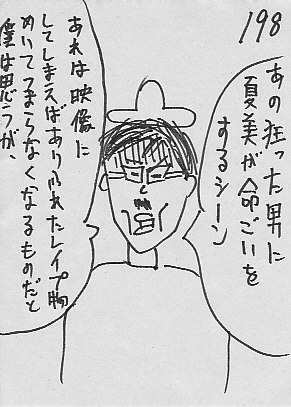 198
あの狂った男に
夏美が命ごいを
するシーン
あれは映像に
してしまえばありふれたレイプ
めいてつまらなくなるものだと
僕は思うが、